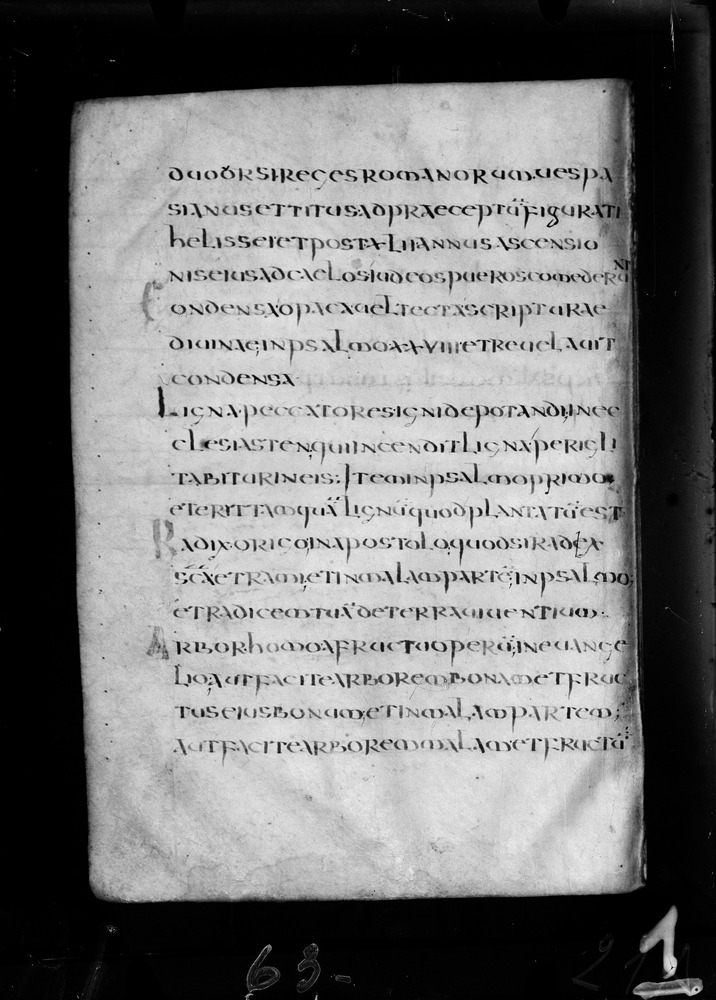 duo ursi reges romanorum uespa
sianus et titus ad praeceptū figurati
helissei et post XLII annus ascensio
nis eius ad caelos iudeos pueros comederūt
Condensa opaca uel tecta scripturae
diuinae; in psalmo XXVIII et reuelauit
condensa
Ligna peccatores igni depotandi; in ec
clesiasten qui incendit ligna pericli
tabitur in eis; Item in psalmo primo
et erit tamquā lignū quod plantatū est
Radix origo in apostolo quod si radex
scā et rami; et in malam partē; in psalmo;
et radicem tuā de terra uiuentium;
Arbor homo a fructu operū; in euange
lio; aut facite arborem bonam et fruc
tus eius bonum; et in malam partem;
aut facite arborem malam et fructū
63-
1